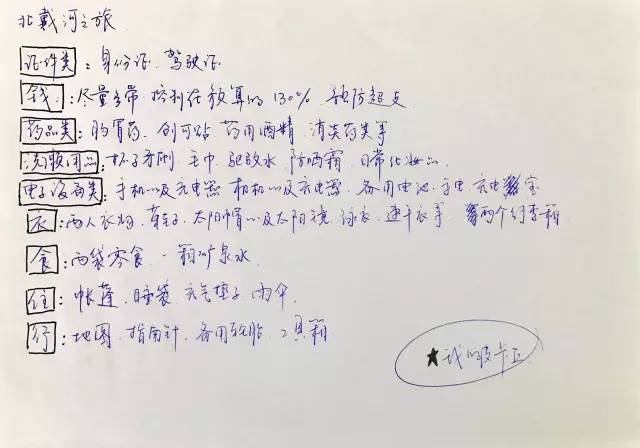 北戴河之旅
证件类:身份证、驾驶证
钱:尽量多带 控制在预算的130% 预防超支
药品类:肠胃药、创可贴 药用酒精、消炎药类等
洗漱用品:杯子牙刷、毛巾、驱蚊水、防晒霜、日常化妆品、
电子设备类:手机以及充电器 相机以及充电器、备用电池、手电、充电宝
衣:两人衣物、鞋子、太阳帽以及太阳镜 泳衣、速干衣等、两个行李箱
食:两袋零食、一箱矿泉水
住:帐篷、睡袋、充气垫子、雨伞
行:地图、指南针、备用轮胎、工具箱
★我的皮卡丘